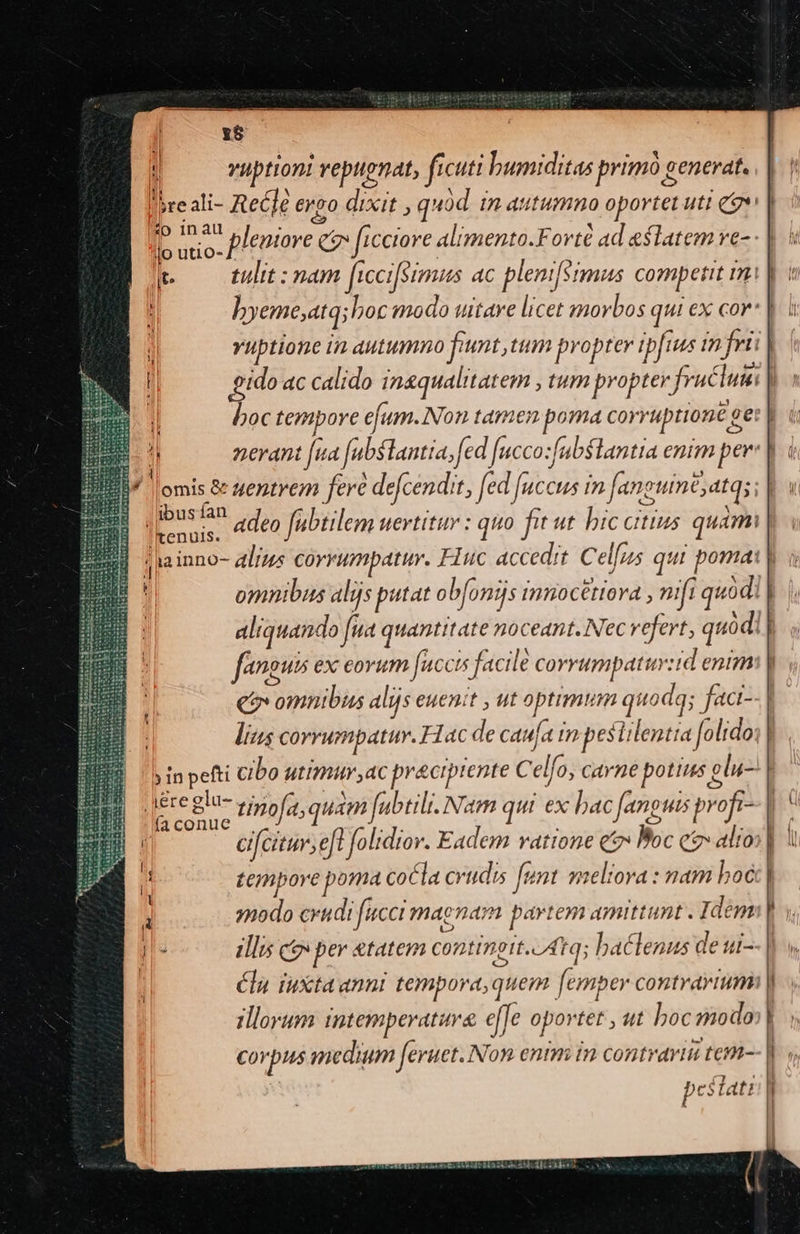 16
ruptioni repugnat, ſicuti humiditas primò generat.
Recłè ergo dixit, quòd in autumno oportet uti &
pleniore & ſicciore alimento. Fortè ad æſtatem re-
tulit: nam ſicciſsimus ac pleniſsimus competit in
hyeme, atq; hoc modo uitare licet morbos qui ex cor
ruptione in autumno fiunt, tum propter ipſius in fri
gido ac calido inæqualitatem, tum propter fructuũ
hoc tempore eſum. Non tamen poma corruptionẽ ge
nerant ſua ſubſtantia, ſed ſucco: ſubſtantia enim per
uentrem ferè deſcendit, ſed ſuccus in ſanguinẽ, atq;
adeo ſubtilem uertitur: quo fit ut hic citius quàm
alius corrumpatur. Huc accedit Celſus qui poma
omnibus alijs putat obſonijs innocẽtiora, niſi quòd
aliquando ſua quantitate noceant. Nec refert, quòd
ſanguis ex eorum ſuccis facilè corrumpatur: id enim
& omnibus alijs euenit, ut optimum quodq; faci-
lius corrumpatur. Hac de cauſa in peſtilentia ſolido
cibo utimur, ac præcipiente Celſo, carne potius glu-
tinoſa, quàm ſubtili. Nam qui ex hac ſanguis profi-
ciſcitur, eſt ſolidior. Eadem ratione & hoc & alio
tempore poma cocta crudis ſunt meliora: nam hoc
modo crudi ſucci magnam partem amittunt. Idem
illis & per ætatem contingit. Atq; hactenus de ui-
ctu iuxta anni tempora, quem ſemper contrarium
illorum intemperaturæ eſſe oportet, ut hoc modo
corpus medium ſeruet. Non enim in contrariũ tem-
peſtati
re ali-
o in au
o utio-
t.
omis &
ibus ſan
tenuis.
a inno-
in peſti
ère glu-
ſa conue